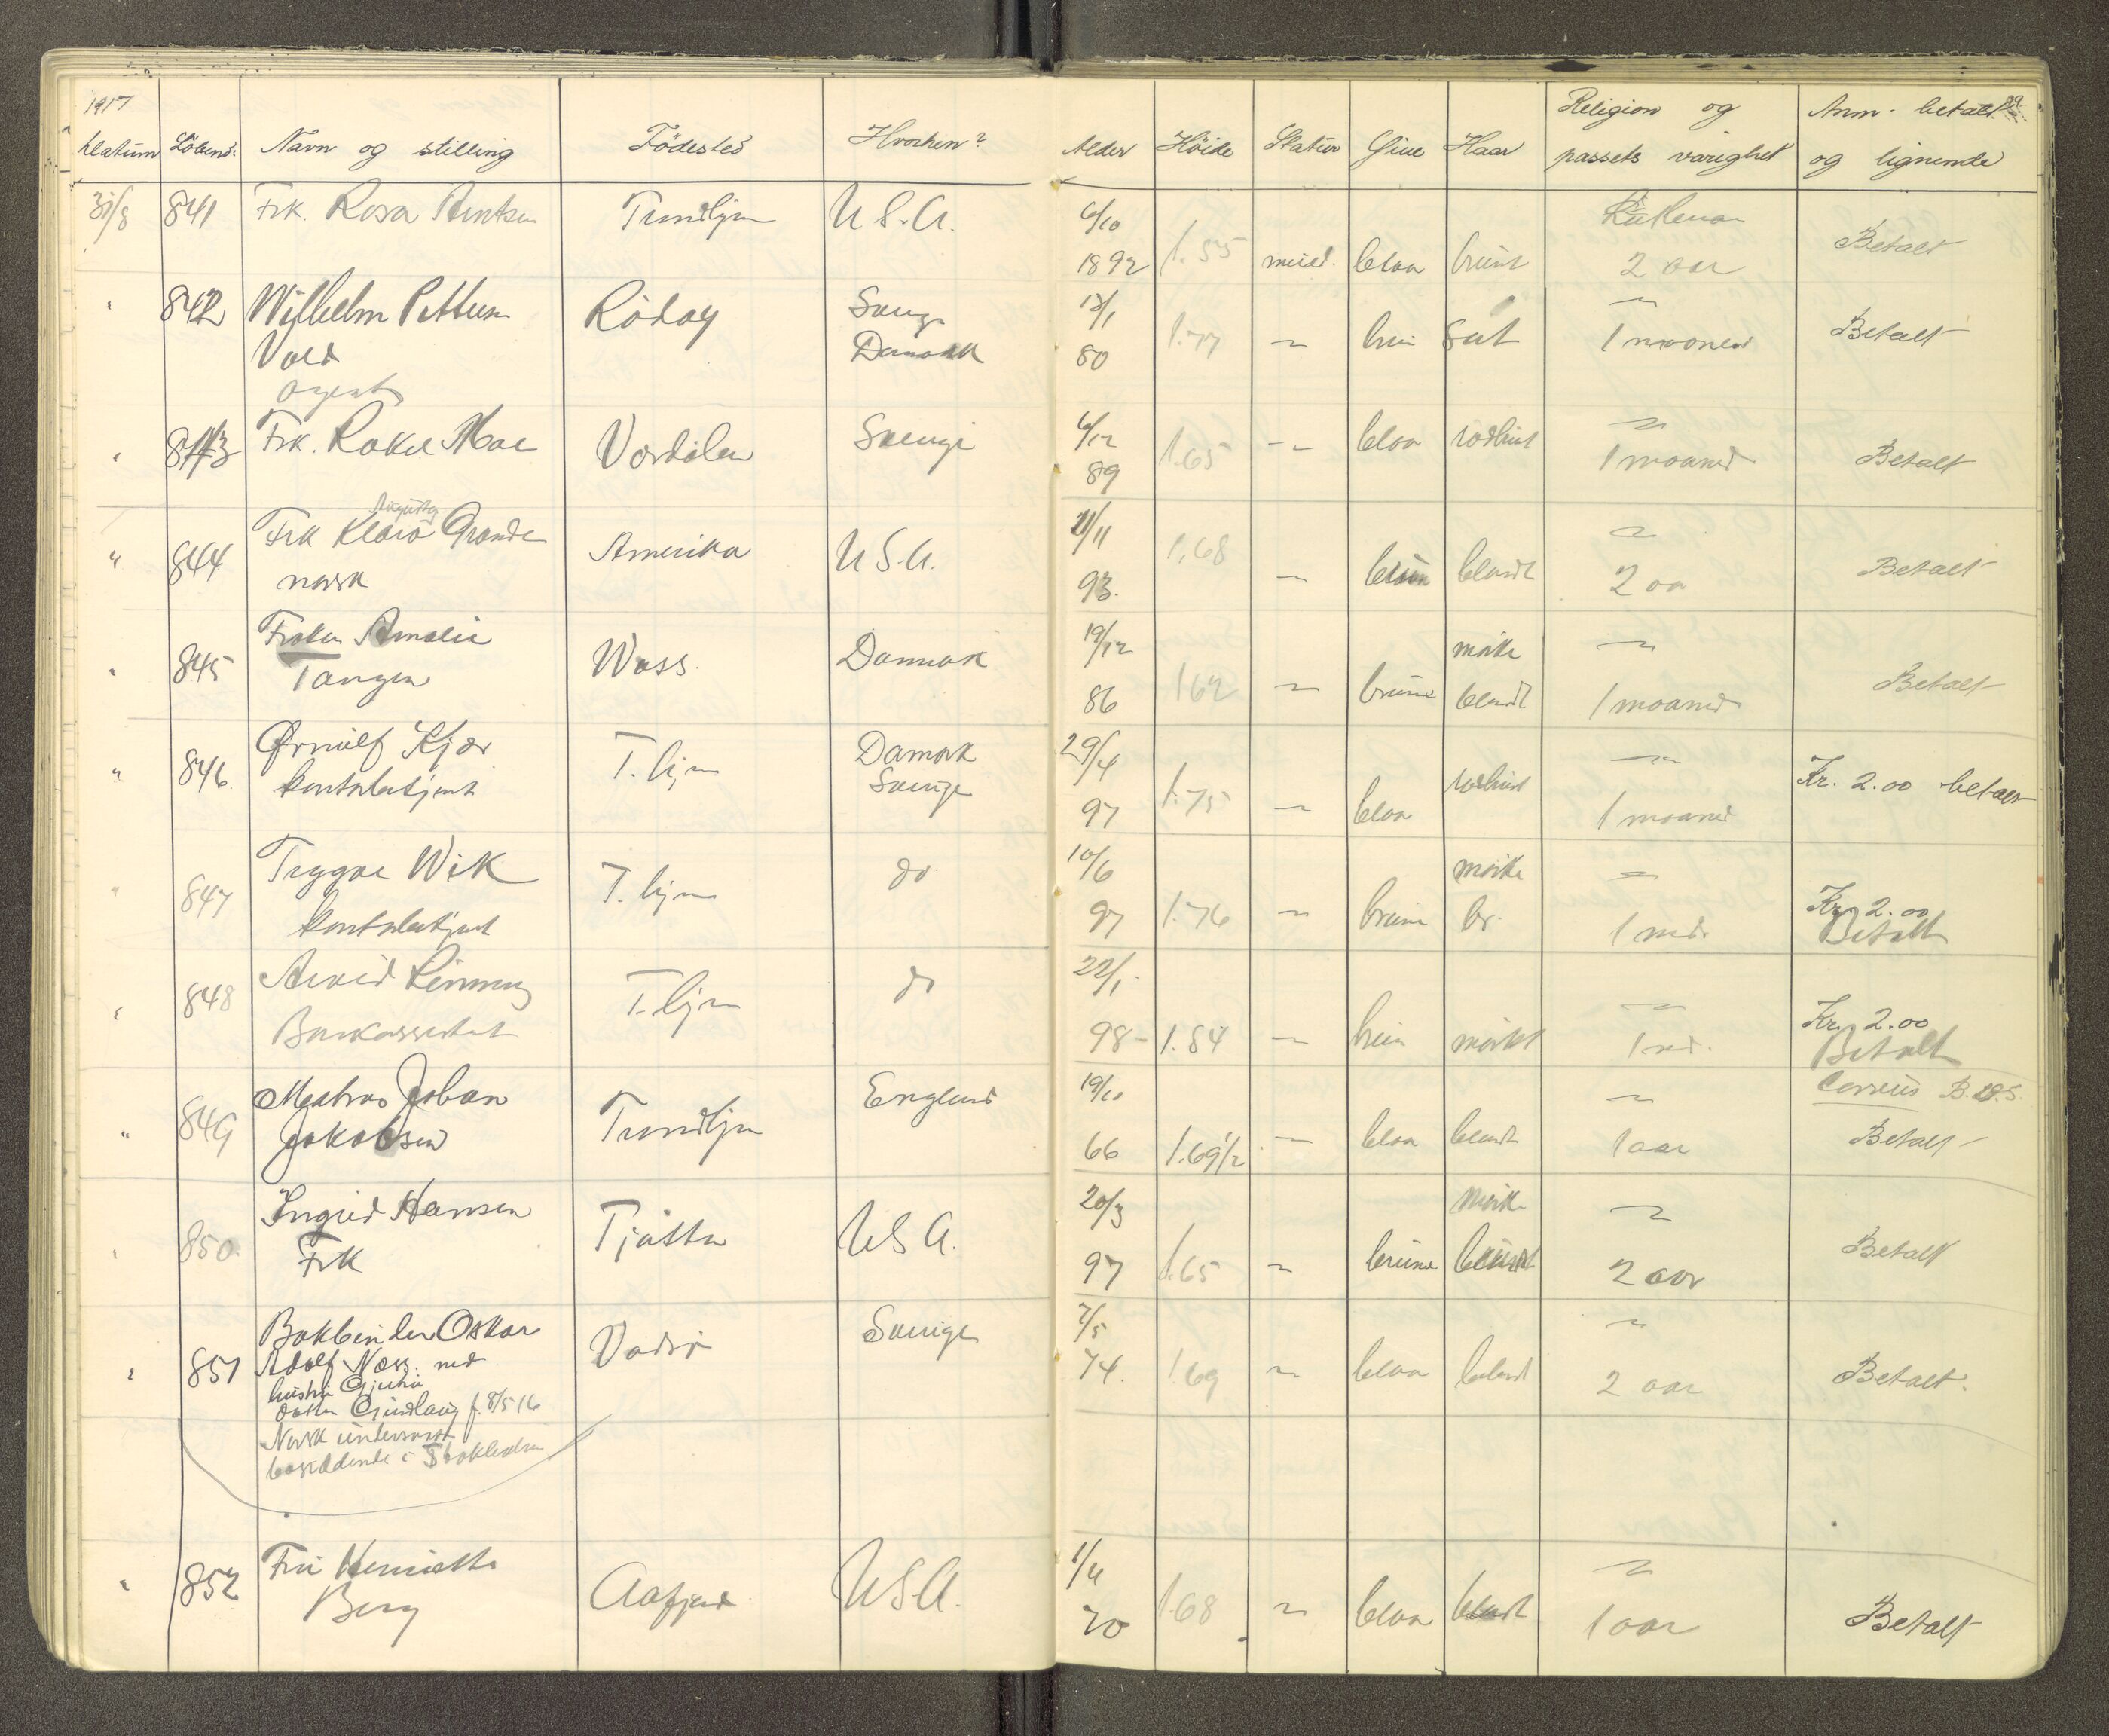 1917
Datum Löbenr. Navn og stilling Födested Hvorhen? Alder Höide Statur Öine Haar Religion og passets varighet Anm. betalt og lignende
31/8 841 Frk. Rosa Arntsen Trondhjem U.S.A. 6/10 1892 1.55 midd. blaa brunt Luthersk 2 aar Betalt
" 842 Wilhelm Pettersen Rödøy Sverige 13/1 1.77 ~ brun sort ~ 1 maaned Betalt
Vold Danmark 80
agent
" 843 Frk. Rakel Moe Værdalen Sverige 6/12 89 1.65 ~ blaa rødbrunt ~ 1 maaned Betalt
" 844 Frk Klara Augusta Grande Amerika U.S.A. 11/11 93. 1.68 ~ blondt ~ 2 aar Betalt
norsk
" 845 Frøken Amalie Woss. Danmark 19/12 1.62 ~ brune mörke ~
Tangen 86 blondt 1 maaned Betalt
" 846. Ørnulf Kjær T.hjem Danmark 29/4 1.75 ~ blaa rødbrunt ~ Kr. 2.00 betalt
kontorbetjent Sverige 97 1 maaned
" 847 Trygve Wik T.hjem do 10/6 mörke ~ Kr. 2.00
kontorbetjent 97 1.76 ~ brune br. 1 md. Betalt
" 848 Arvid T.hjem do 22/1 ~ Kr. 2.00
Bankassistent 98 1.84 ~ brun mörkt 1 md. Betalt
" 849 Matros Johan Trondhjem England 19/10 ~
Jakobsen 66 1.69 1/2 ~ blaa blondt 1 aar Betalt
" 850 Ingrid Hansen Tjøtta U S A. 20/3 mörke ~
Frk 97 1.65 ~ brune 2 aar Betalt
" 851 Bokbinder Oskar Vadsö Sverige 7/5 ~
Adolf Næss. med 74. 1.69 ~ blaa blondt 2 aar Betalt.
hustru
datter Gudlaug f. 8/5 16
Norsk undersaatt
bosiddende i Stokholm
" 852 Fru Henriette Aafjord U S A. ~
Berg 70 1.68 ~ blaa blondt 1 aar Betalt